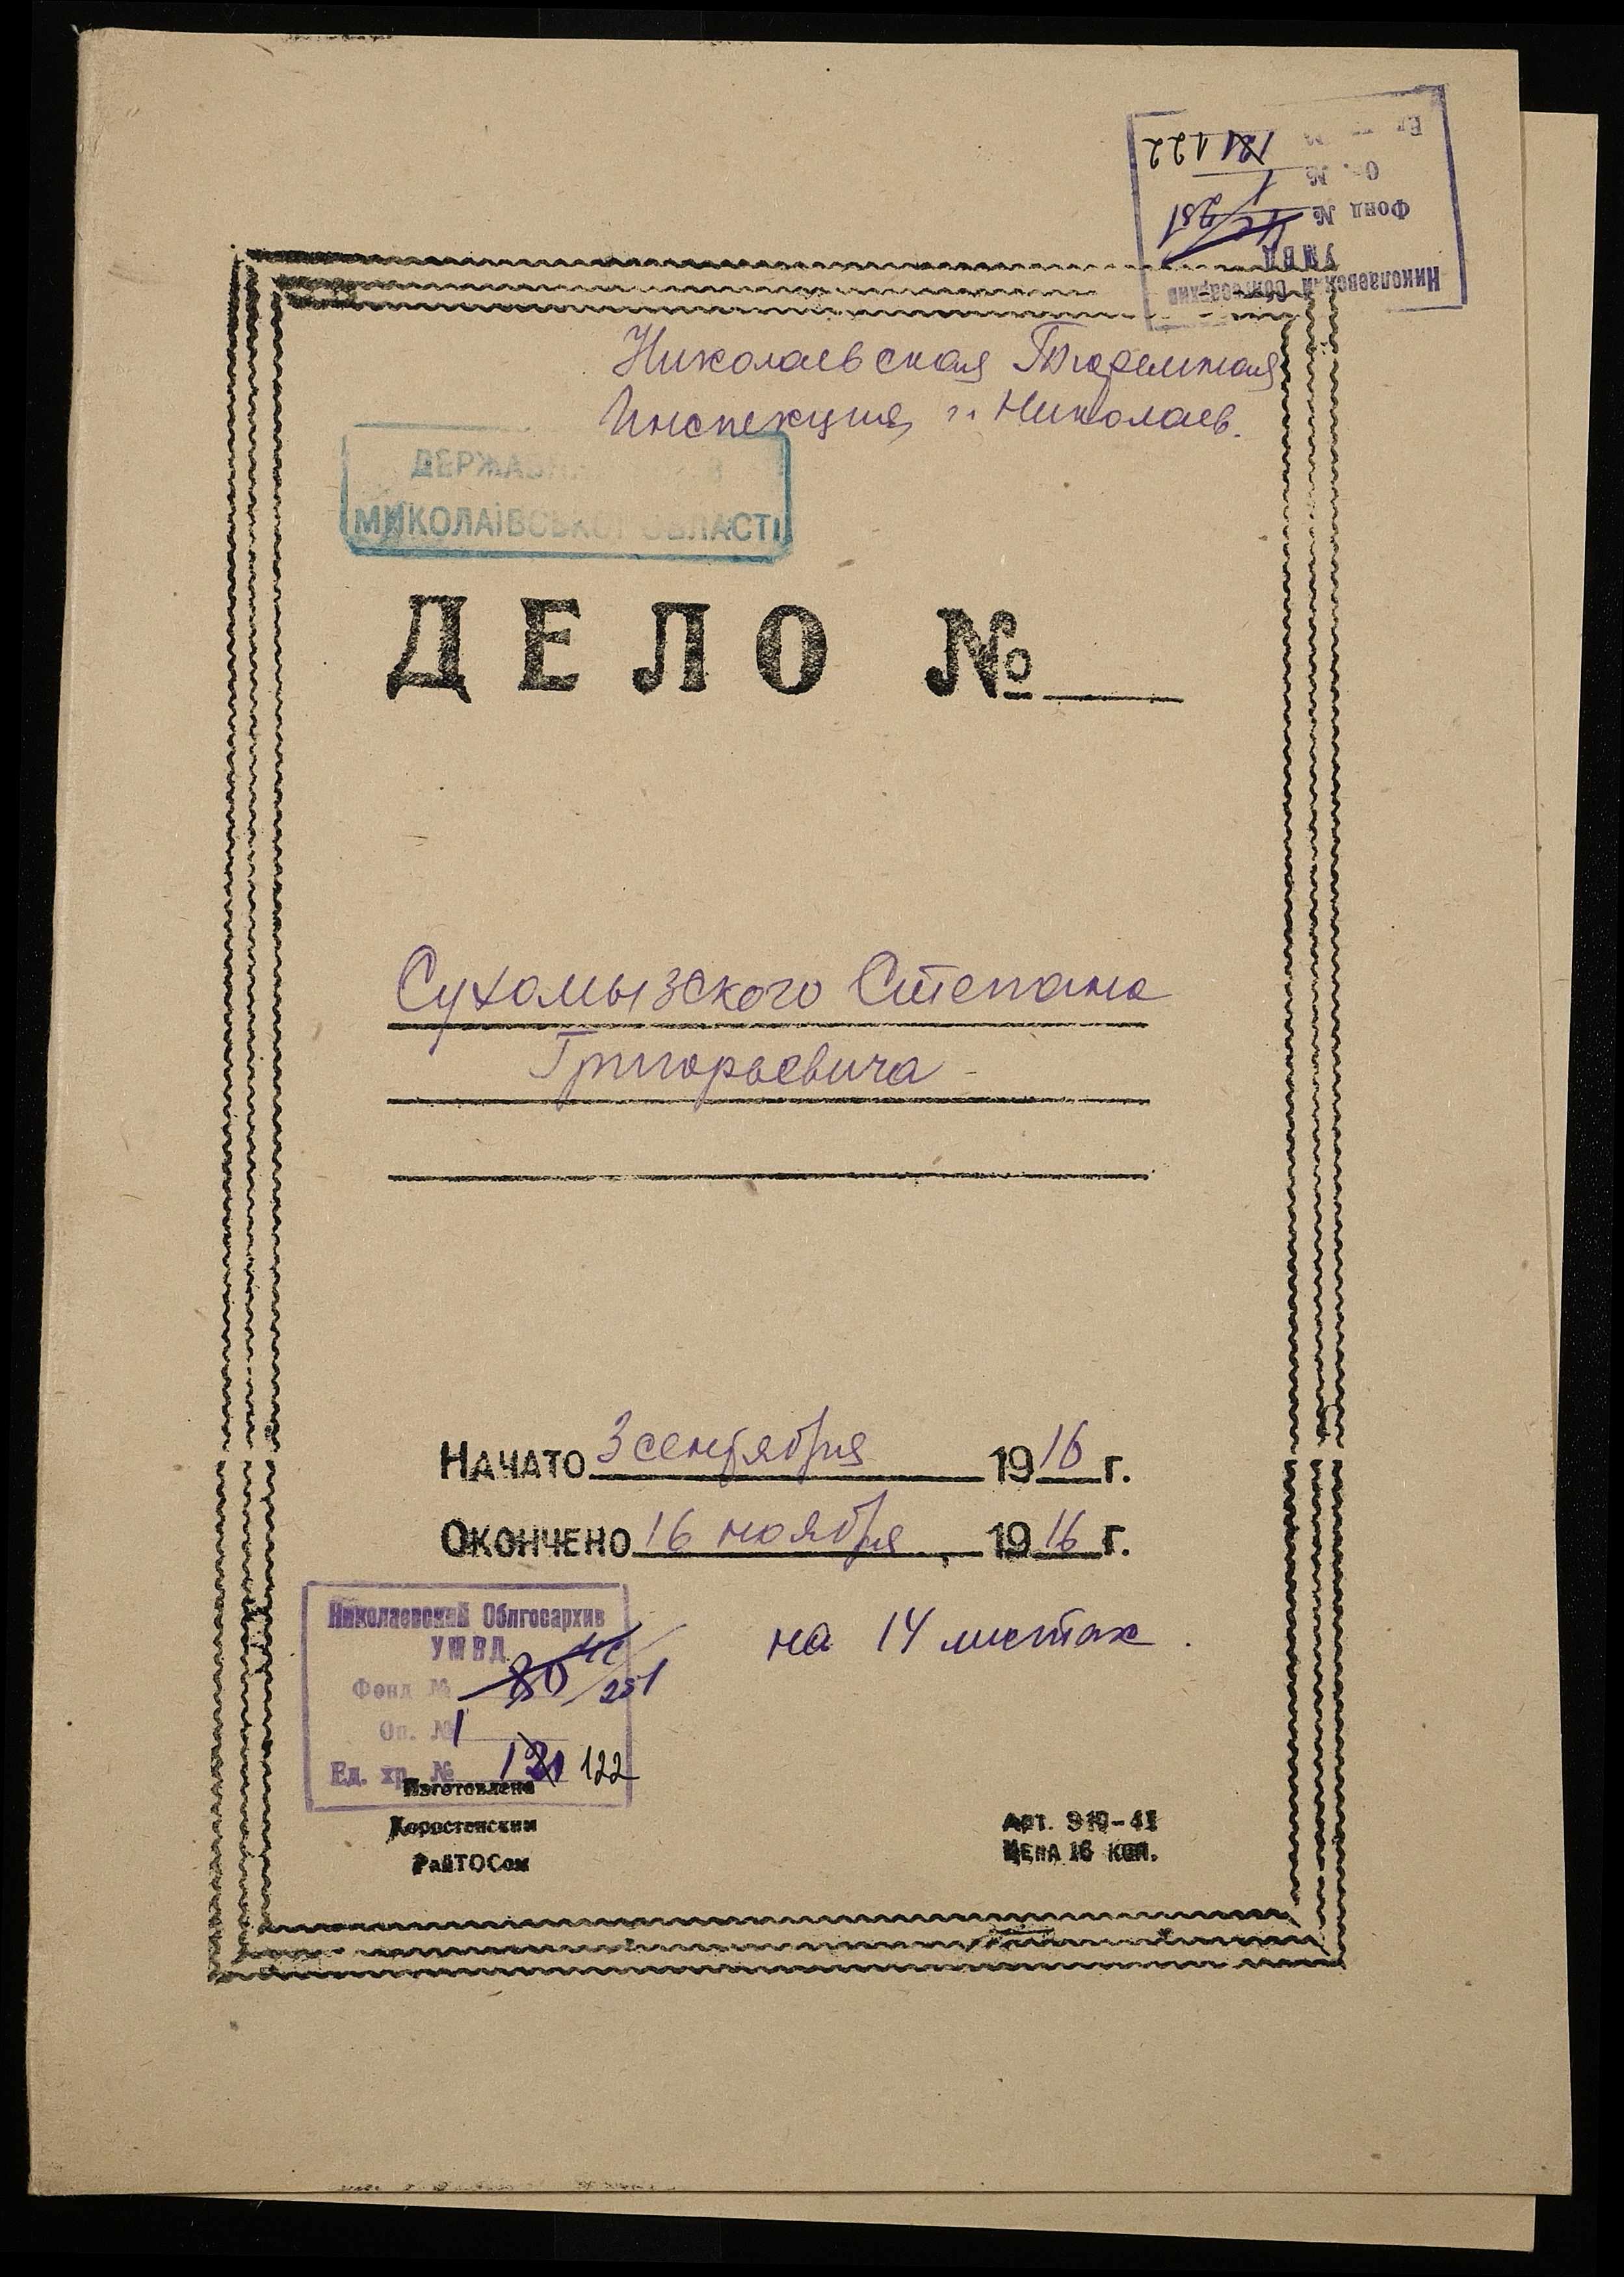 Николаевский Облгосархив
УМВД
Фонд № 251
Оп. № 1
121 122
Николаевская Тюремная
Инспекция, г. Николаев.
ДЕРЖАВНИЙ
МИКОЛАЇВСЬКОЇ ОБЛАСТІ
ДЕЛО №
Сухомызского Степана
Григорьевича
НАЧАТО 3 сентября 1916 г.
ОКОНЧЕНО 16 ноября 1916 г.
на 14 листах.
Николаевский Облгосархив
УМВД
Фонд № 80 251
Оп. № 1
Ед. хр. № 121 122
Изготовлено
Коростенским
РайТОСом
Арт. 910-41
ЦЕНА 16 КОП.